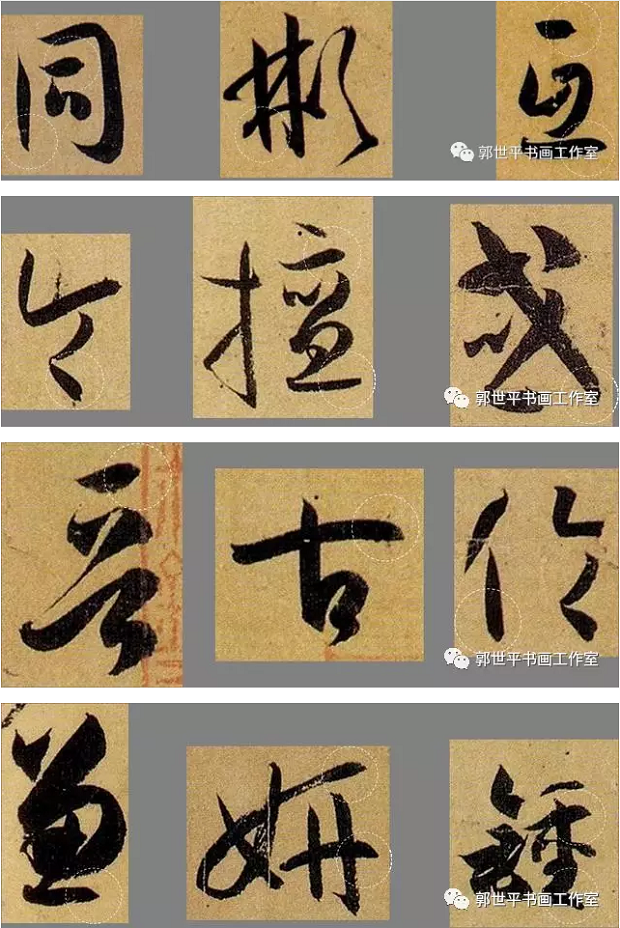 同 彬
郭世平书画工作室
今 擅 或
郭世平书画工作室
古
郭世平书画工作室
兼 妍 鍾
郭世平书画工作室